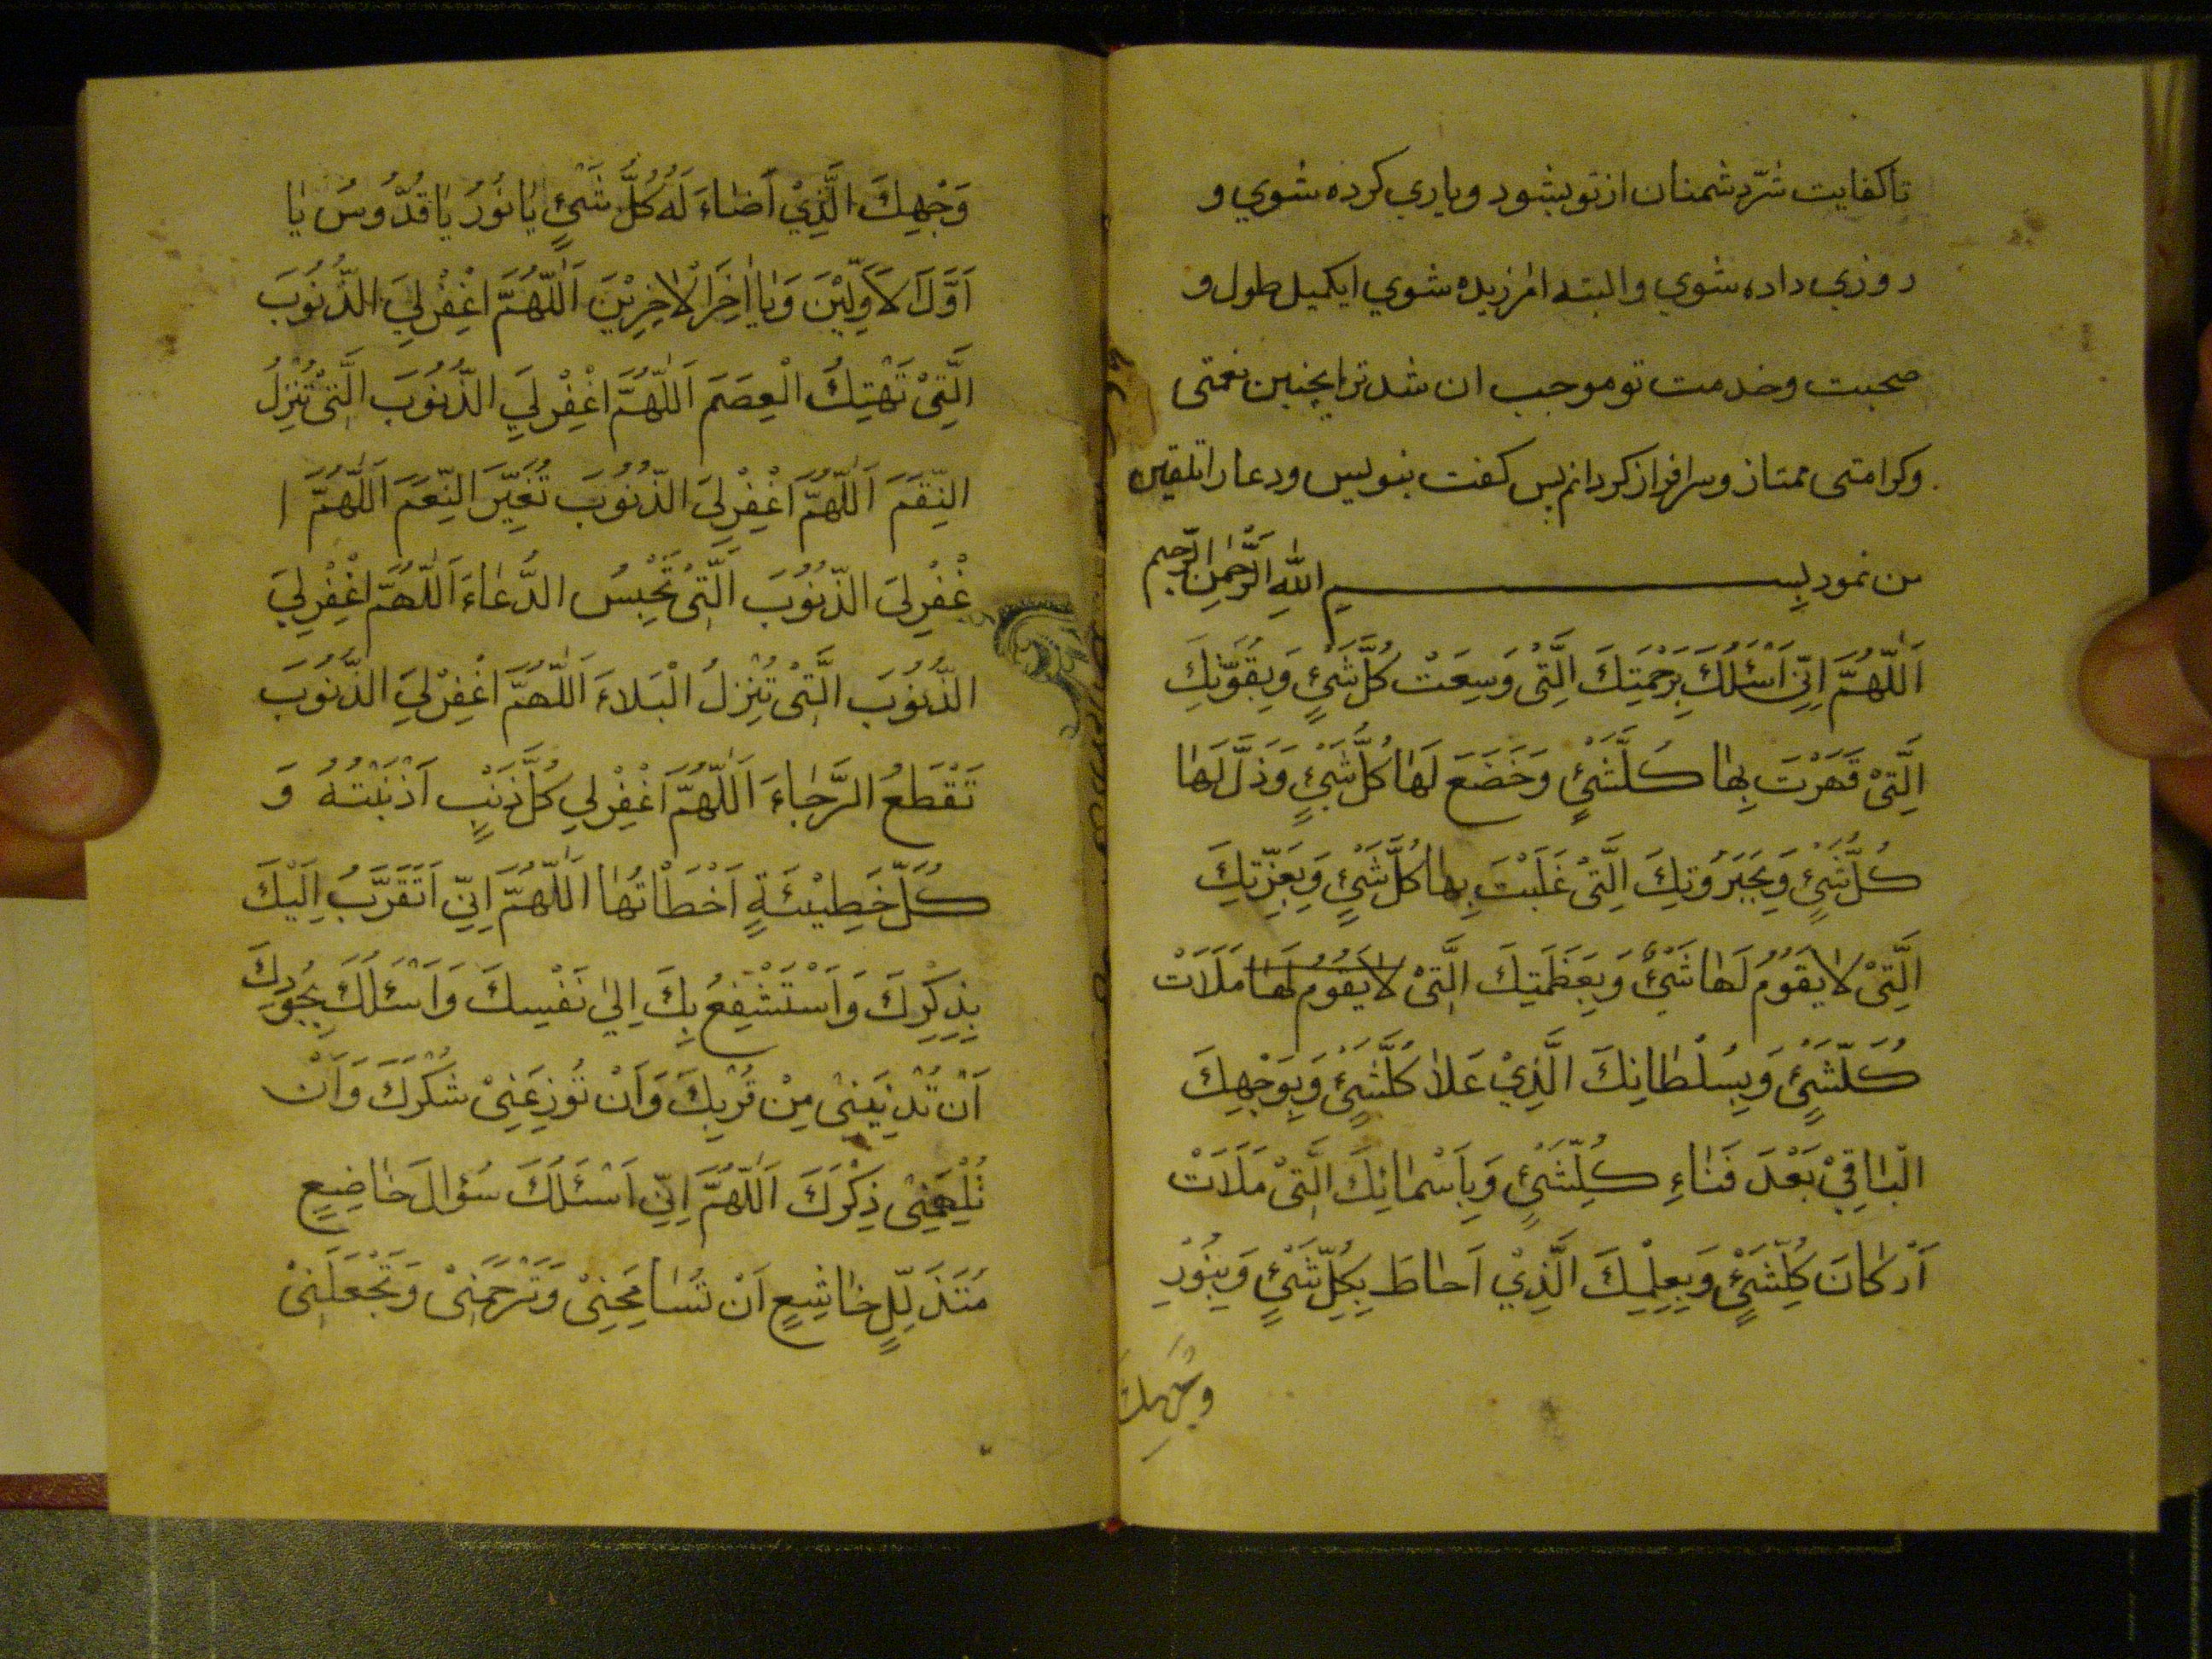 تا کفایت شرّ دشمنان از تو بشود و یاري کرده شوي و
روزي داده شوي و البته امرزیده شوي ایکمیل طول و
صحبت و خدمت تو موجب ان شد ترا بچنین نعمتی
وکرامتی ممتاز و سرافراز کردانم پس کفت بنویس و دعا را تلقین
من نمود بِسـمِ اللّٰهِ الرَّحْمٰنِ الرَّحیم
اَللّٰهُمَّ اِنّي اَسْئَلُكَ بِرَحْمَتِكَ الَّتِيْ وَسِعَتْ كُلَّ شَيْءٍ وَبِقُوَّتِكَ
الَّتِيْ قَهَرْتَ بِهٰا كُلَّشَيْءٍ وَخَضَعَ لَهٰا كُلُّ شَيْءٍ وَذَلَّ لَهٰا
كُلُّشَيْءٍ وَبِجَبَرُوْتِكَ الَّتِيْ غَلَبْتَ بِهٰا كُلَّ شَيْءٍ وَبِعِزَّتِكَ
الَّتِيْ لاٰيَقُوْمُ لَهٰا شَيْءٌ وَبِعَظَمَتِكَ الَّتِيْ لاٰيَقُوْمُ لَهٰا مَلَاَتْ
كُلَّشَيْءٍ وَبِسُلْطٰانِكَ الَّذِيْ عَلاٰ كُلَّشَيْءٍ وَبِوَجْهِكَ
الْبٰاقِيْ بَعْدَ فَنٰاءِ كُلِّشَيْءٍ وَبِاَسْمٰائِكَ الَّتِيْ مَلَاَتْ
اَرْكٰانَ كُلِّشَيْءٍ وَبِعِلْمِكَ الَّذِيْ اَحٰاطَ بِكُلِّ شَيْءٍ وَبِنُوْرِ
وَجْهِكَ
وَجْهِكَ الَّذِيْ اَضٰاءَ لَهُ كُلُّ شَيْءٍ يٰا نُوْرُ يٰا قُدُّوْسُ يٰا
اَوَّلَ الْاَوَّلِيْنَ وَيٰا اٰخِرَ الْاٰخِرِيْنَ اَللّٰهُمَّ اغْفِرْ لِيَ الذُّنُوْبَ
الَّتِيْ تَهْتِكُ الْعِصَمَ اَللّٰهُمَّ اغْفِرْ لِيَ الذُّنُوْبَ الَّتِيْ تُنْزِلُ
النِّقَمَ اَللّٰهُمَّ اغْفِرْ لِيَ الذُّنُوْبَ تُغَيِّرَ النِّعَمَ اَللّٰهُمَّ ا
غْفِرْ لِيَ الذُّنُوْبَ الَّتِيْ تَحْبِسُ الدُّعٰاءَ اَللّٰهُمَّ اغْفِرْ لِيَ
الذُّنُوْبَ الَّتِيْ تُنْزِلُ الْبَلاءَ اَللّٰهُمَّ اغْفِرْ لِيَ الذُّنُوْبَ
تَقْطَعُ الرَّجٰاءَ اَللّٰهُمَّ اغْفِرْ لِي كُلَّ ذَنْبٍ اَذْنَبْتُهُ وَ
كُلَّ خَطِيْئَةٍ اَخْطَأْتُهٰا اَللّٰهُمَّ اِنّي اَتَقَرَّبُ اِلَيْكَ
بِذِكْرِكَ وَاَسْتَشْفِعُ بِكَ اِلىٰ نَفْسِكَ وَاَسْئَلُكَ بِجُوْدِكَ
اَنْ تُدْنِيَنِيْ مِنْ قُرْبِكَ وَاَنْ تُوْزِعَنِيْ شُكْرَكَ وَاَنْ
تُلْهِمَنِيْ ذِكْرَكَ اَللّٰهُمَّ اِنّي اَسْئَلُكَ سُؤالَ خٰاضِعٍ
مُتَذَلِّلٍ خٰاشِعٍ اَنْ تُسٰامِحَنِيْ وَتَرْحَمَنِيْ وَتَجْعَلَنِيْ